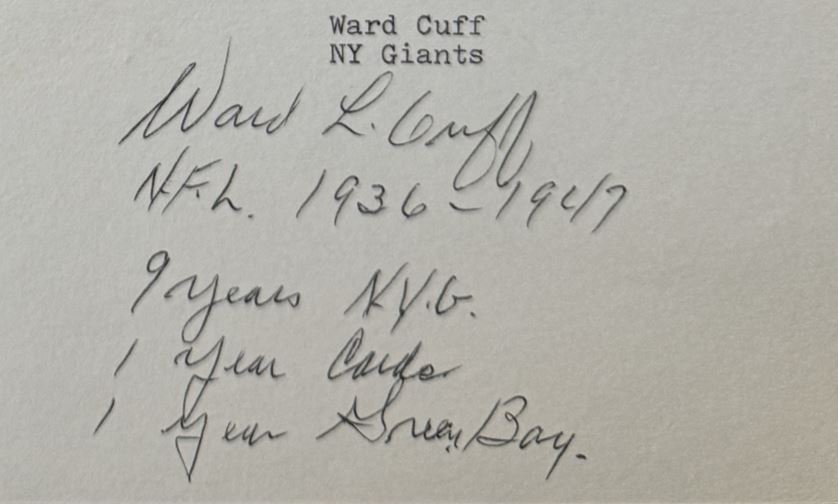 Ward Cuff
NY Giants
Ward L. Cuff
N.F.L. 1936-1947
9 years N.Y.G.
1 year Cards
1 year Green Bay.